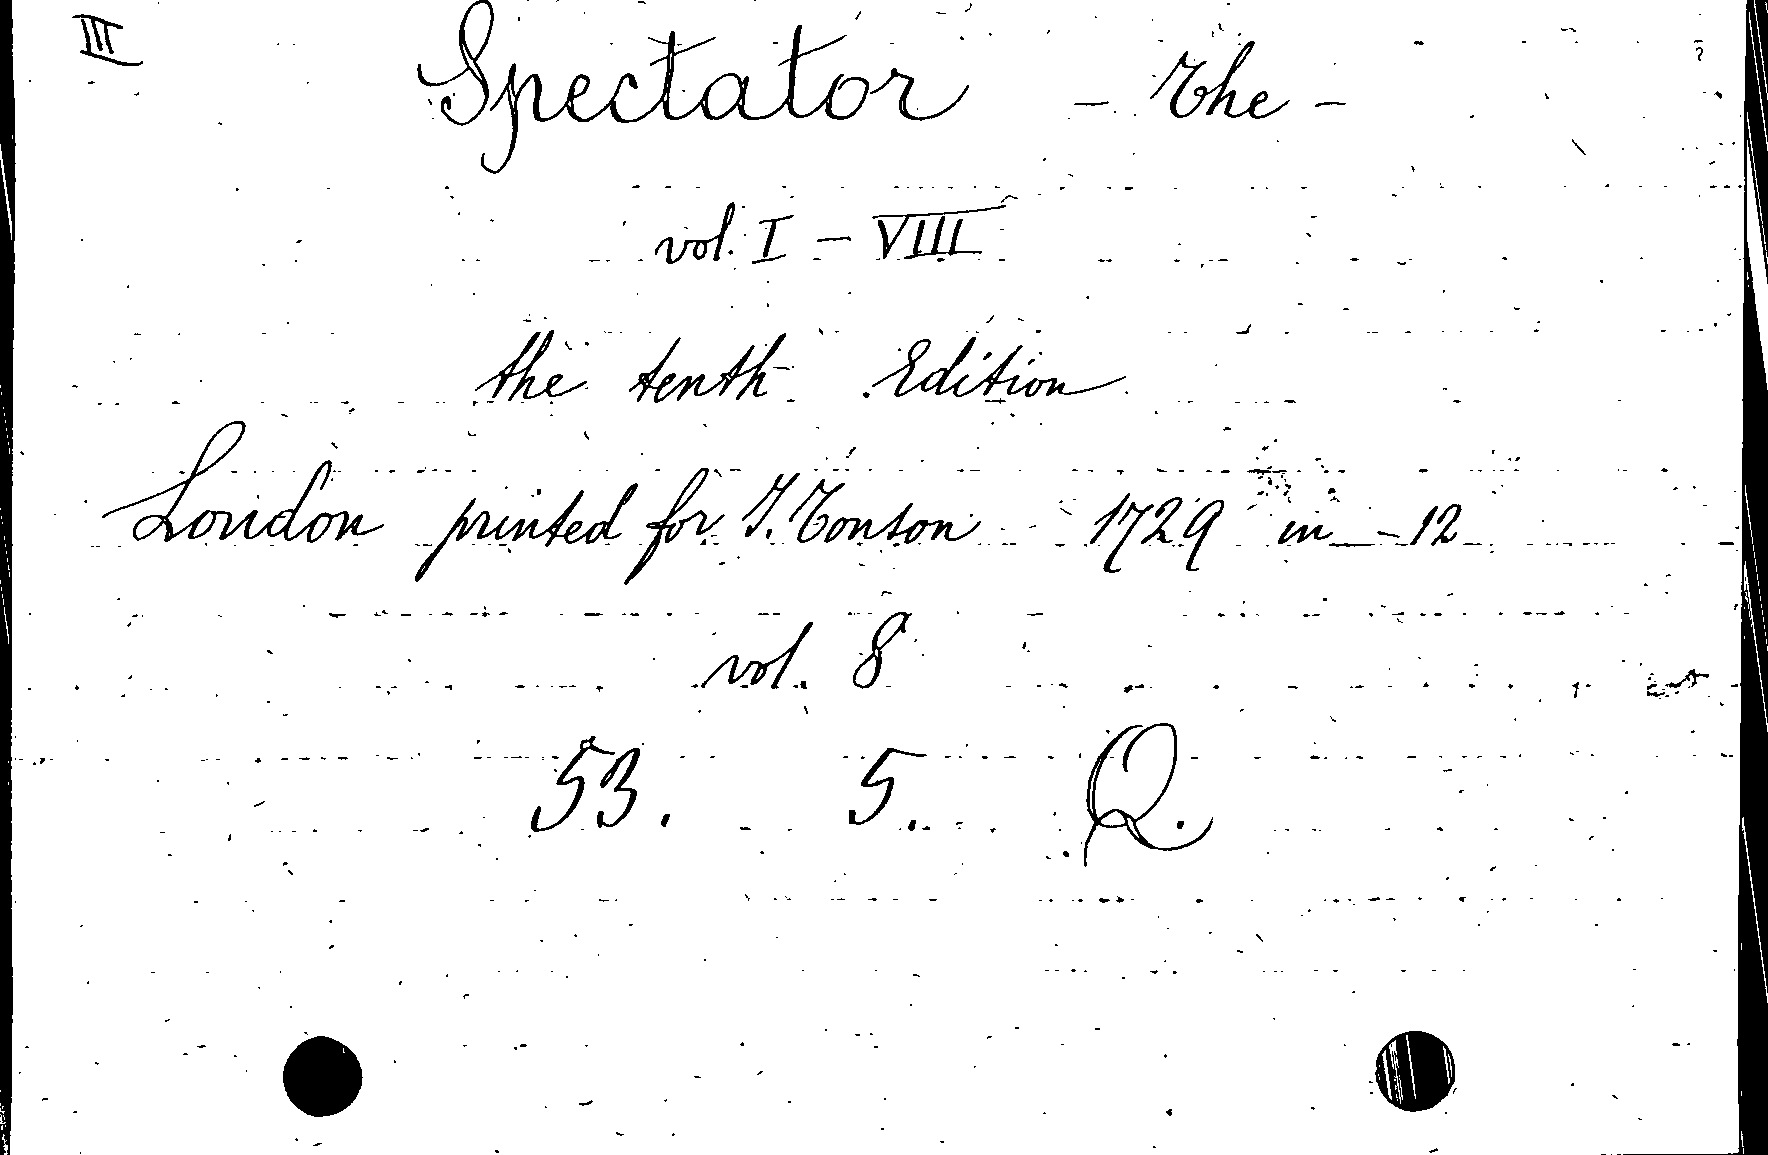 III
Spectator - The -
vol. I - VIII
the tenth Edition
London printed for J. Tonson 1729 in-12
vol. 8
53. 5. Q.